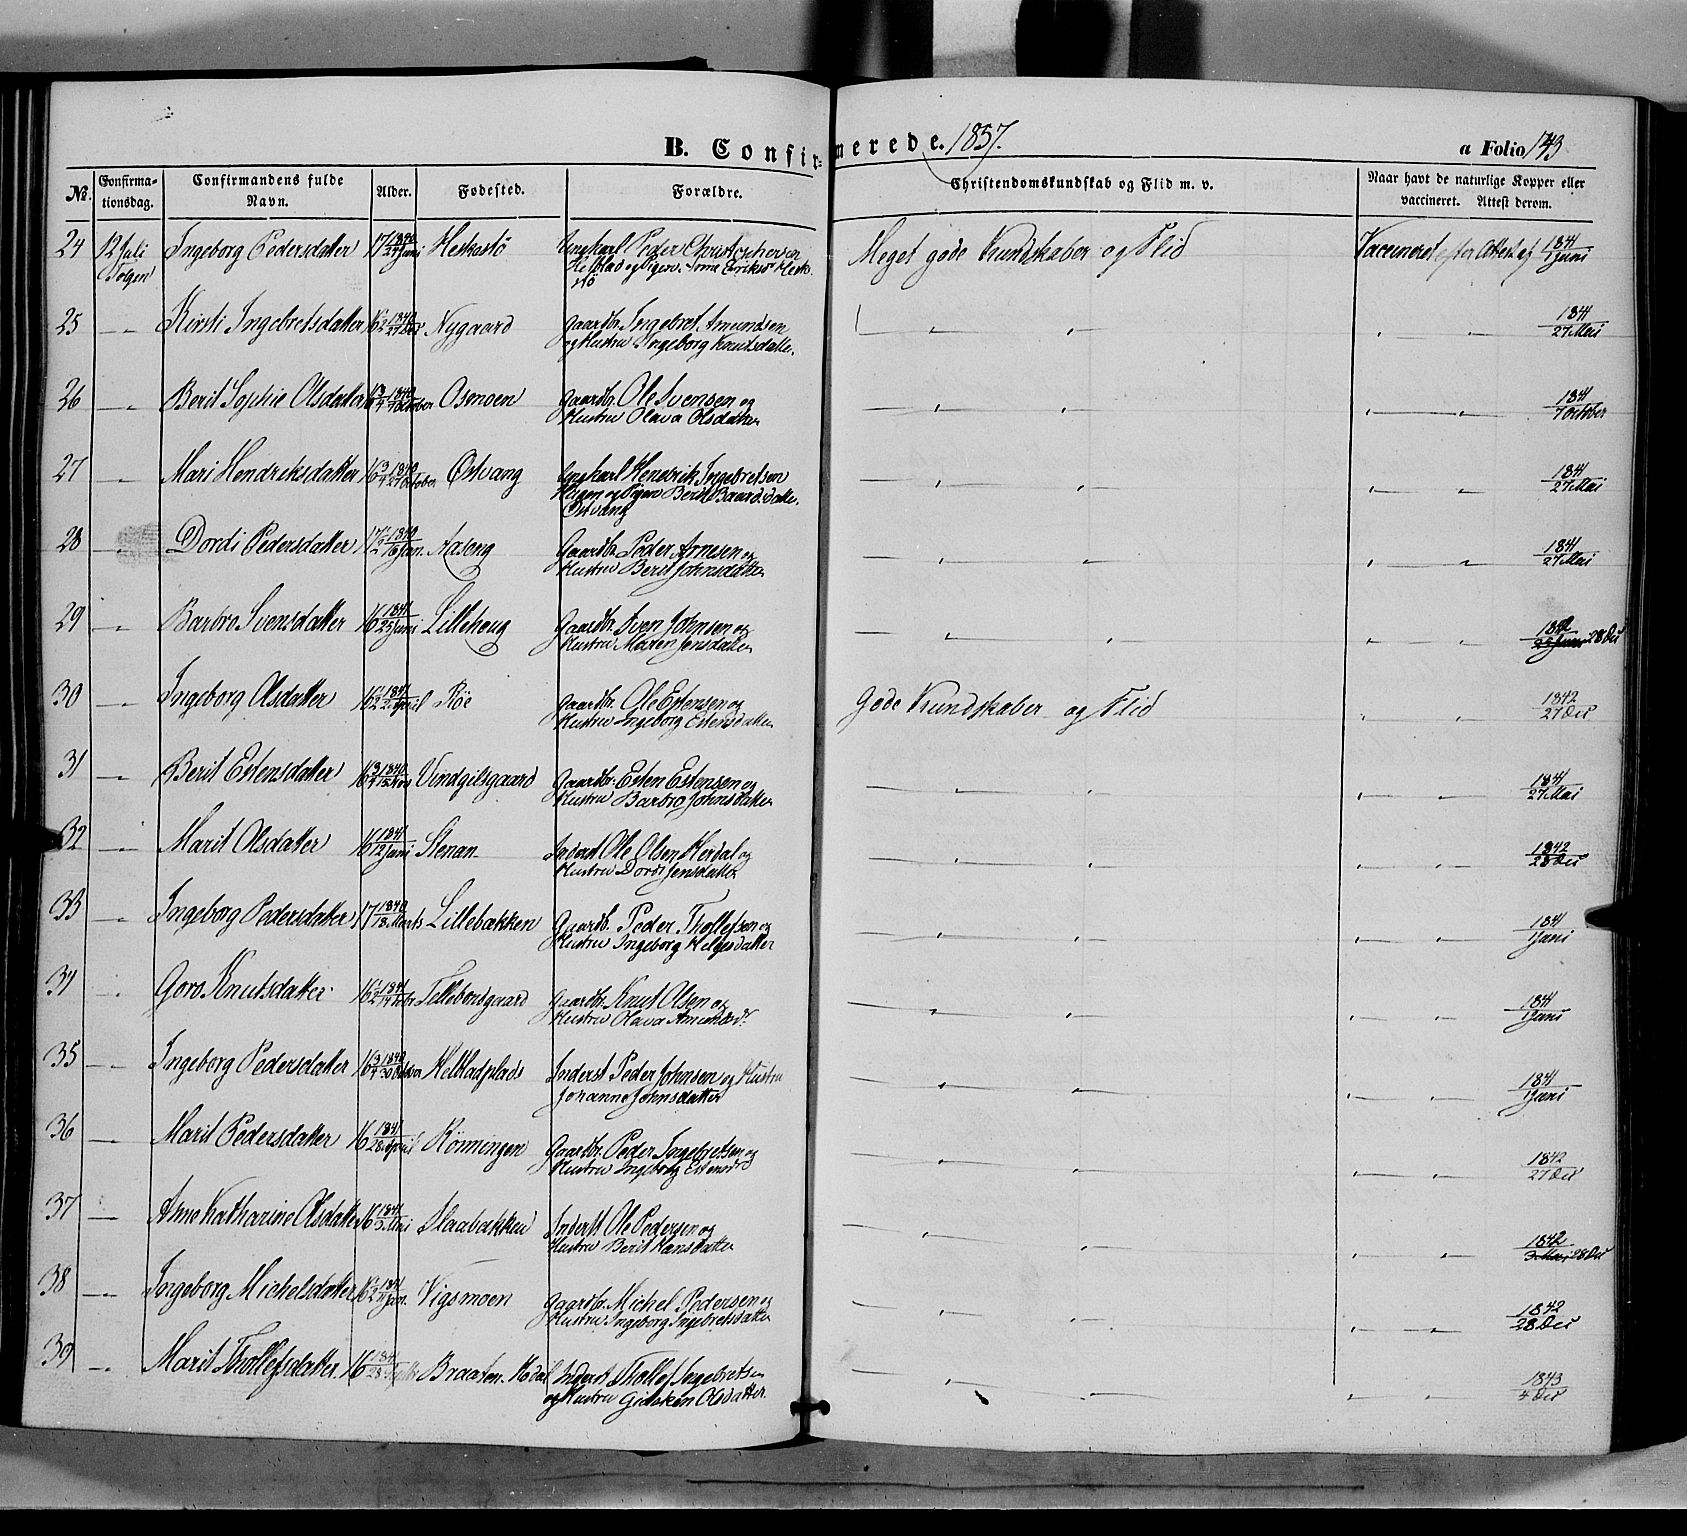 B. Confirmerede. 1857.
a Folio 143
No. Confirmationsdag. Confirmandens fulde Navn. Alder. Fødested. Forældre. Christendomskundskab og Flid m. v. Naar havt de naturlige Kopper eller vaccineret. Attest derom.
24 12 Juli Ingeborg Pedersdatter 17 1840 Ungkarl Peder Christophersen Meget gode Kundskaber og Flid Vaccineret efter Attest af 1841 1 Juni
25 Kirsti Ingebretsdatter 1840 Nygaard Gaardbr. Ingebret Amundsen
og Hustru Ingeborg Knutsdatter 1841 27 Mai
26 Berit Sophie Olsdatter 1840 October Osmoen Gaardbr. Ole Svensen og
Hustru Olava Olsdatter 1841 7 October
27 Mari Hendriksdatter 1840 October Østvang Ungkarl Hendrik Ingebretsen
og Pigen Berit Baardsdatter
Østvang 1841 27 Mai
28 Dordi Pedersdatter 17 1840 16 Jan. Aaseng Gaardbr. Peder Arnesen og
Hustru Berit Johnsdatter 1841 27 Mai
29 Barbro Svensdatter 16 1841 Juni Lillehoug Gaardbr. Sven Johnsen og
Hustru Maren Jensdatter 1842 28 Dec
30 Ingeborg Olsdatter 16 1841 April Röe Gaardbr. Ole Estensen og
Hustru Ingeborg Estensdatter Gode Kundskaber og Flid 1842 27 Dec
31 Berit Estensdatter 16 1840 Vindgilsgaard Gaardbr. Esten Estensen og
Hustru Barbro Johnsdatter 1841 27 Mai
32 Marit Olsdatter 16 1841 12 Juni Stenan Inderst Ole Olsen og
Hustru Dordi Jensdatter 1842 28 Dec
33 Ingeborg Pedersdatter 17 1840 18 Marts Lillebækken Gaardb. Peder Thollefsen og
Hustru Ingeborg Helgesdatter 1841 1 Juni
34 Goro Knutsdatter 16 1841 Gaardbr. Knut Olsen og
Hustru Olava Amundsd. 1841 1 Juni
35 Ingeborg Pedersdatter 16 1840 Inderst Peder Johnsen og Hustru
Johanne Johnsdatter 1841 1 Juni
36 Marit Pedersdatter 16 1841 28 April Rönningen Gaardbr. Peder Ingebretsen og
Hustru Ingeborg Estensd. 1842 27 Dec
37 Ane Katharine Olsdatter 16 1841 3 Mai Slaabakken Inderst Ole Pedersen og
Hustru Berit Hansdatter 1842 3 Mai 28 Dec
38 Ingeborg Michelsdatter 1841 11 Jan. Vigsmoen Gaardbr. Michel Pedersen og
Hustru Ingeborg Ingebretsdatter 1842 28 Dec
39 Marit Thollefsdatter 16 Braaten Inderst Thollef Ingebretsen
og Hustru Olsdatter 1843 4 Dec